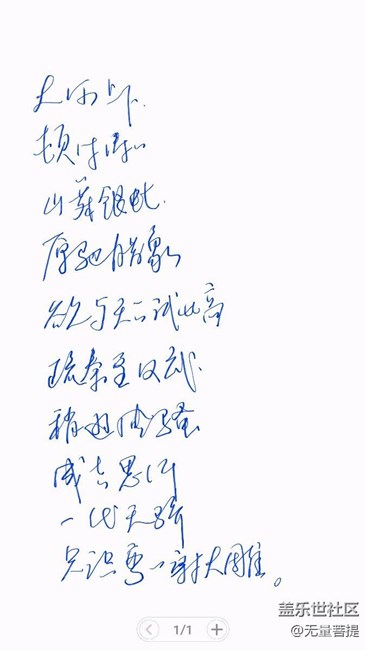 大河上下.
顿失滔滔
山舞银蛇.
原驰腊象
欲与天公试比高
惜秦皇汉武.
稍逊风骚
成吉思汗
一代天骄
只识弯弓射大雕。
1/1
盖乐世社区
@无量菩提